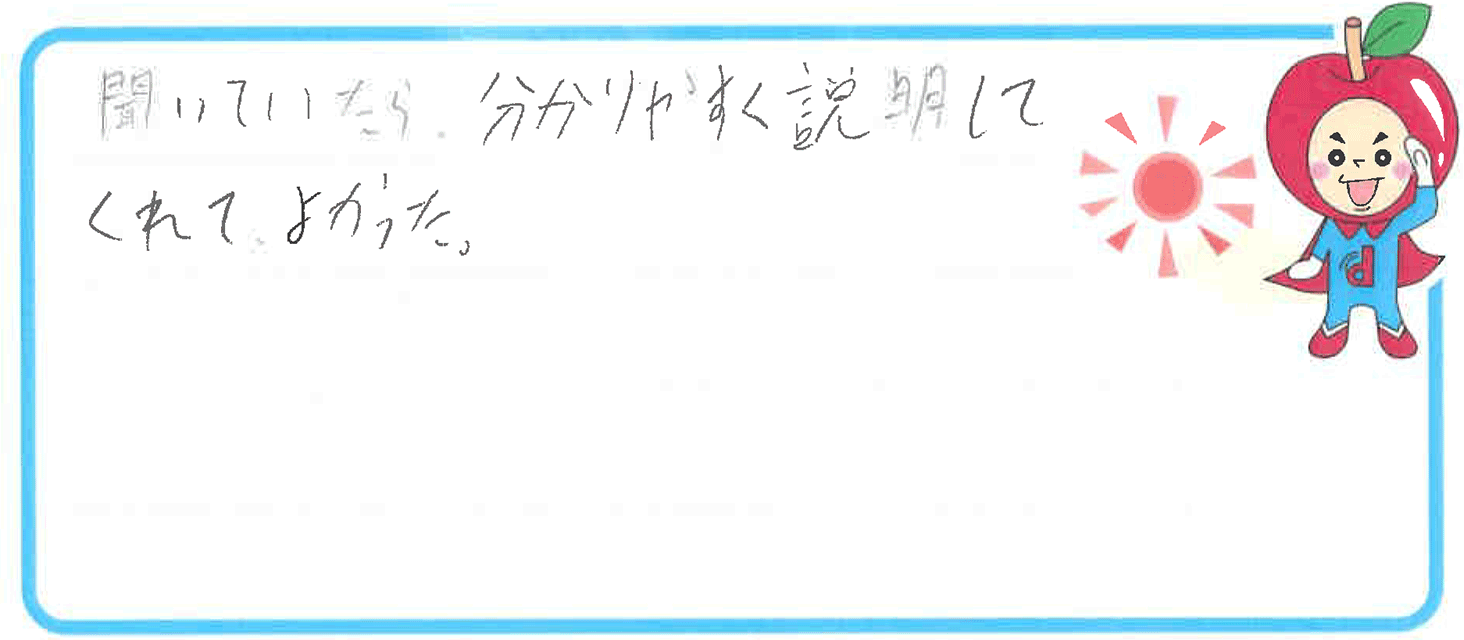 聞いていたら、分かりやすく説明して
くれて、よかった。
d